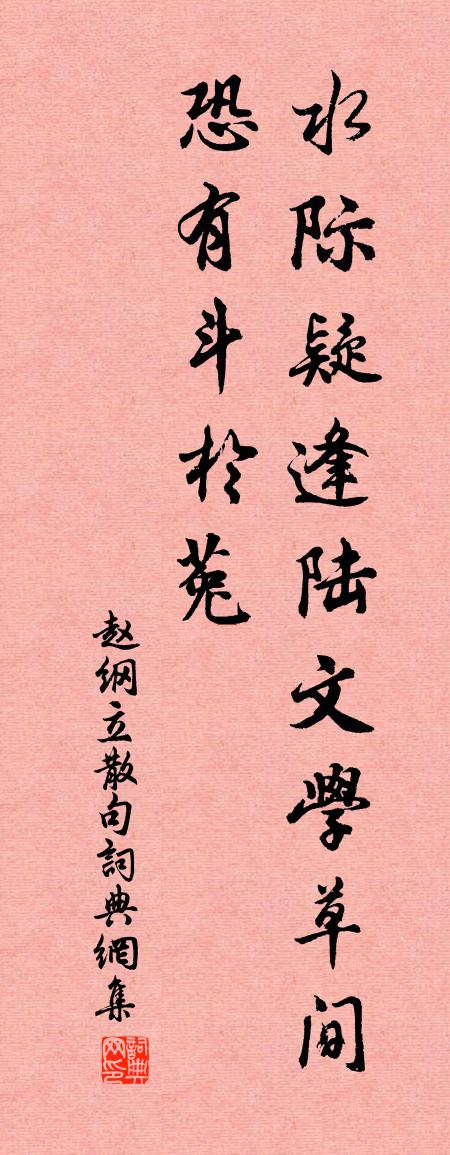 水际疑逢陆文學草间
恐有斗於菟
赵纲立散句詞典網集
詞典
网印